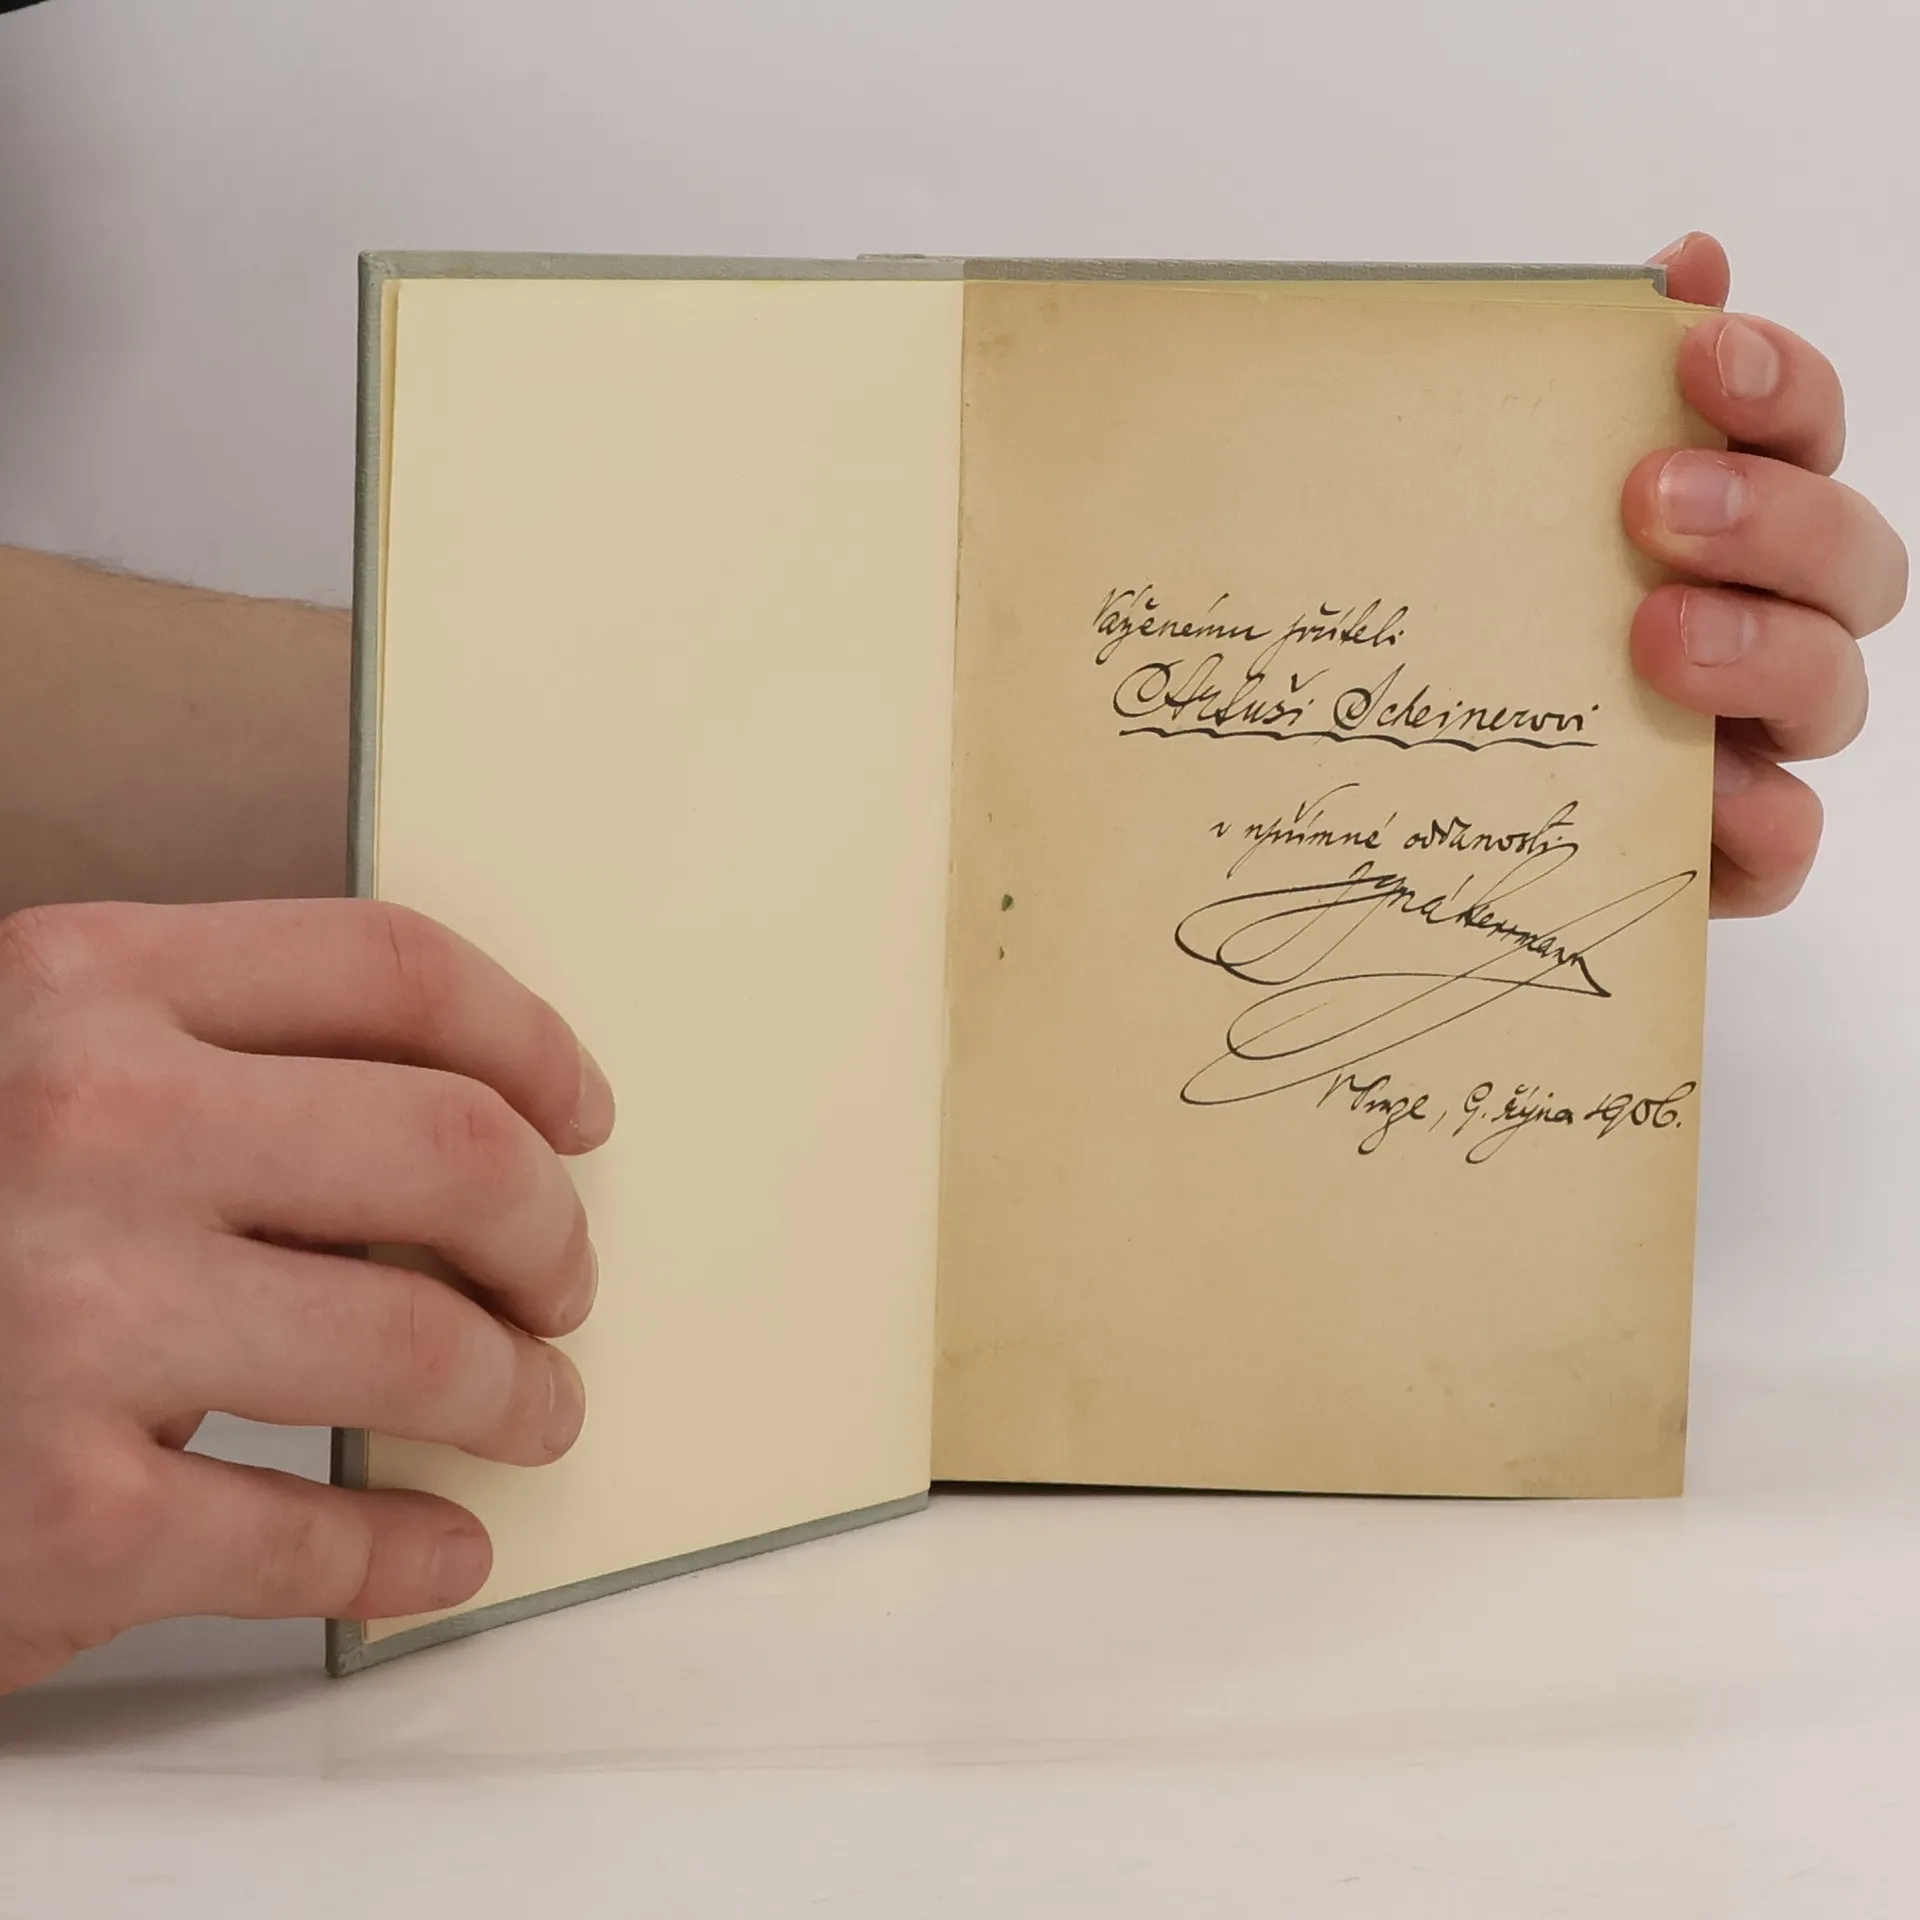 Váženému příteli
Artuši Scheinerovi
v upřímné oddanosti
Ignát Herrmann
V Praze, 9. října 1906.